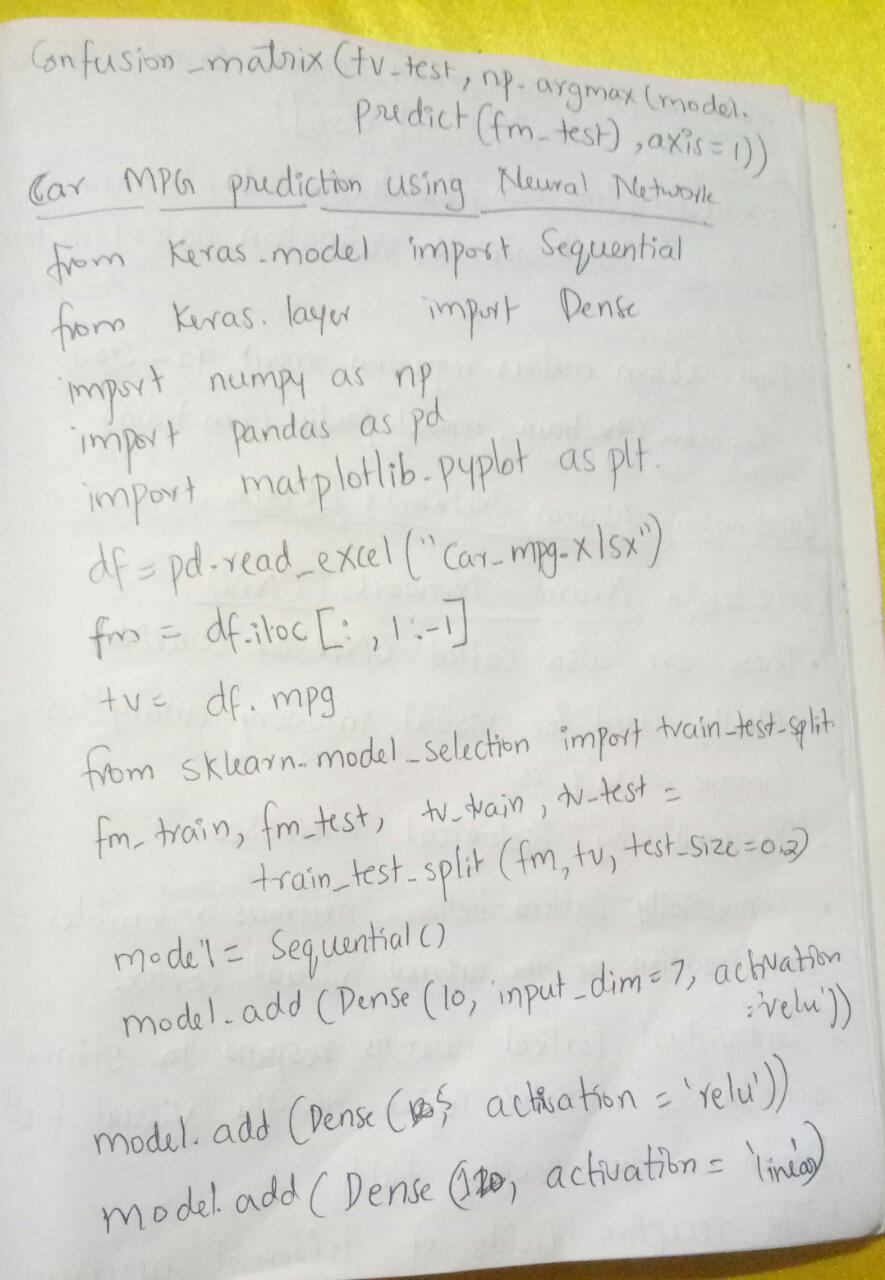 Confusion_matrix (tv_test, np.argmax (model.
predict (fm_test), axis = 1))
Car MPG prediction using Neural Network
from Keras.model import Sequential
from Keras.layer import Dense
import numpy as np
import pandas as pd
import matplotlib.pyplot as plt.
df = pd.read_excel ("Car_mpg.xlsx")
fm = df.iloc [: , 1:-1]
tv = df. mpg
from sklearn.model_selection import train_test_split
fm_train, fm_test, tv_train, tv_test =
train_test_split (fm, tv, test_size = 0.2)
model = Sequential ()
model.add (Dense (10, input_dim = 7, activation
= 'relu'))
model. add (Dense ( activation = 'relu'))
model. add ( Dense ( activation = 'linear)